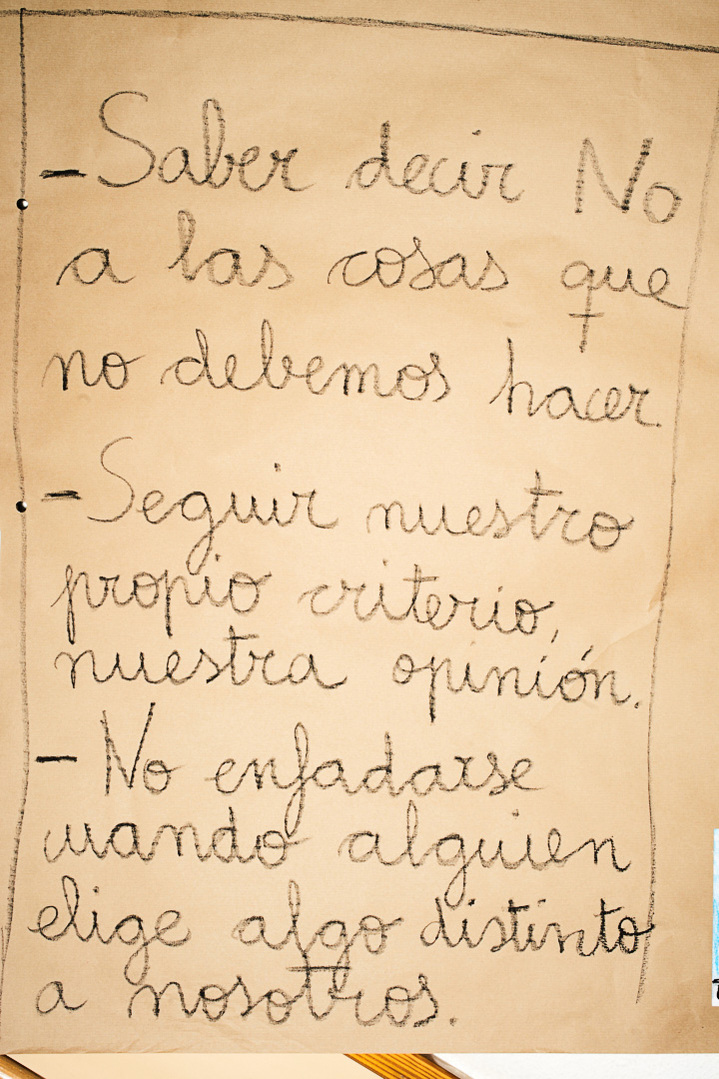 - Saber decir No
a las cosas que
no debemos hacer.
- Seguir nuestro
propio criterio,
nuestra opinión.
- No enfadarse
cuando alguien
elige algo distinto
a nosotros.